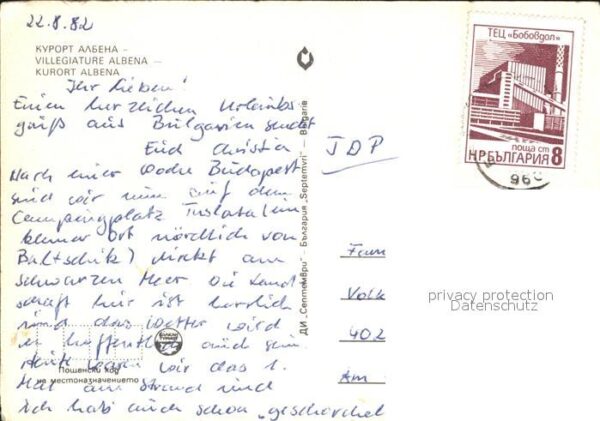 22.8.82
КУРОРТ АЛБЕНА –
VILLEGIATURE ALBENA –
KURORT ALBENA
Ihr Lieben!
Einen herzlichen Urlaubs
gruß aus Bulgarien sendet
Euch Christia
Nach einer Woche Budapest
sind wir nun auf dem
Campingplatz
kleiner Ort nördlich von
Baltschik) direkt am
schwarzen Meer. Die Land
schaft hier ist herrlich
und das Wetter wird
es hoffentlich auch sein.
Heute waren wir das 1.
Mal am Strand und
ich hab auch schon „geschorchel
JDP
Fam
Volk
402
Am
ДИ „Септември" – България „Septemvri" – Bulgarie
Пощенски код
на местоназначението
ТЕЦ „Бобовдол"
ПОЩА СТ 8
НР БЪЛГАРИЯ
960
privacy protection
Datenschutz